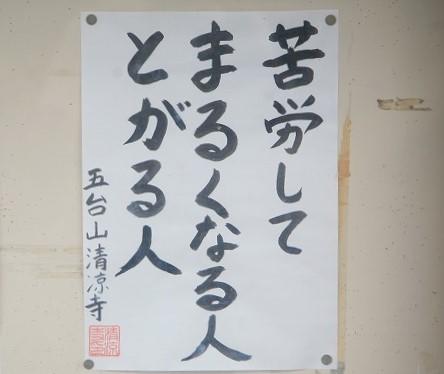 苦労して
まるくなる人
とがる人
五台山清凉寺